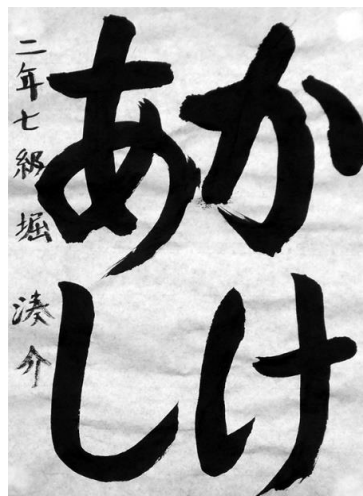 かけ
あし
二年七級堀湊介